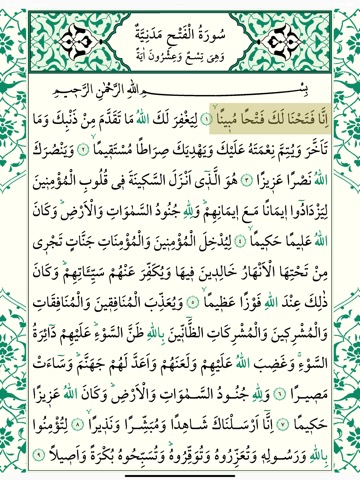 سُورَةُ الْفَتْحِ مَدَنِيَّةٌ
وَهِىَ تِسْعٌ وَعِشْرُونَ اٰيَةً
بِسْمِ اللّٰهِ الرَّحْمٰنِ الرَّحِيمِ
اِنَّا فَتَحْنَا لَكَ فَتْحًا مُبِينًاۙ ﴿١﴾ لِيَغْفِرَ لَكَ اللّٰهُ مَا تَقَدَّمَ مِنْ ذَنْبِكَ وَمَا
تَاَخَّرَ وَيُتِمَّ نِعْمَتَهُ عَلَيْكَ وَيَهْدِيَكَ صِرَاطًا مُسْتَقِيمًاۙ ﴿٢﴾ وَيَنْصُرَكَ
اللّٰهُ نَصْرًا عَزِيزًا ﴿٣﴾ هُوَ الَّذِٓى اَنْزَلَ السَّكِينَةَ فِى قُلُوبِ الْمُؤْمِنِينَ
لِيَزْدَادُٓوا اِيمَانًا مَعَ اِيمَانِهِمْۜ وَلِلّٰهِ جُنُودُ السَّمٰوَاتِ وَالْاَرْضِۜ وَكَانَ
اللّٰهُ عَلِيمًا حَكِيمًاۙ ﴿٤﴾ لِيُدْخِلَ الْمُؤْمِنِينَ وَالْمُؤْمِنَاتِ جَنَّاتٍ تَجْرِى
مِنْ تَحْتِهَا الْاَنْهَارُ خَالِدِينَ فِيهَا وَيُكَفِّرَ عَنْهُمْ سَيِّـَٔاتِهِمْۜ وَكَانَ
ذٰلِكَ عِنْدَ اللّٰهِ فَوْزًا عَظِيمًاۙ ﴿٥﴾ وَيُعَذِّبَ الْمُنَافِقِينَ وَالْمُنَافِقَاتِ
وَالْمُشْرِكِينَ وَالْمُشْرِكَاتِ الظَّٓانِّينَ بِاللّٰهِ ظَنَّ السَّوْءِۜ عَلَيْهِمْ دَٓائِرَةُ
السَّوْءِۚ وَغَضِبَ اللّٰهُ عَلَيْهِمْ وَلَعَنَهُمْ وَاَعَدَّ لَهُمْ جَهَنَّمَۜ وَسَٓاءَتْ
مَصِيرًا ﴿٦﴾ وَلِلّٰهِ جُنُودُ السَّمٰوَاتِ وَالْاَرْضِۜ وَكَانَ اللّٰهُ عَزِيزًا
حَكِيمًا ﴿٧﴾ اِنَّٓا اَرْسَلْنَاكَ شَاهِدًا وَمُبَشِّرًا وَنَذِيرًاۙ ﴿٨﴾ لِتُؤْمِنُوا
بِاللّٰهِ وَرَسُولِهِ وَتُعَزِّرُوهُ وَتُوَقِّرُوهُۜ وَتُسَبِّحُوهُ بُكْرَةً وَاَصِيلًا ﴿٩﴾